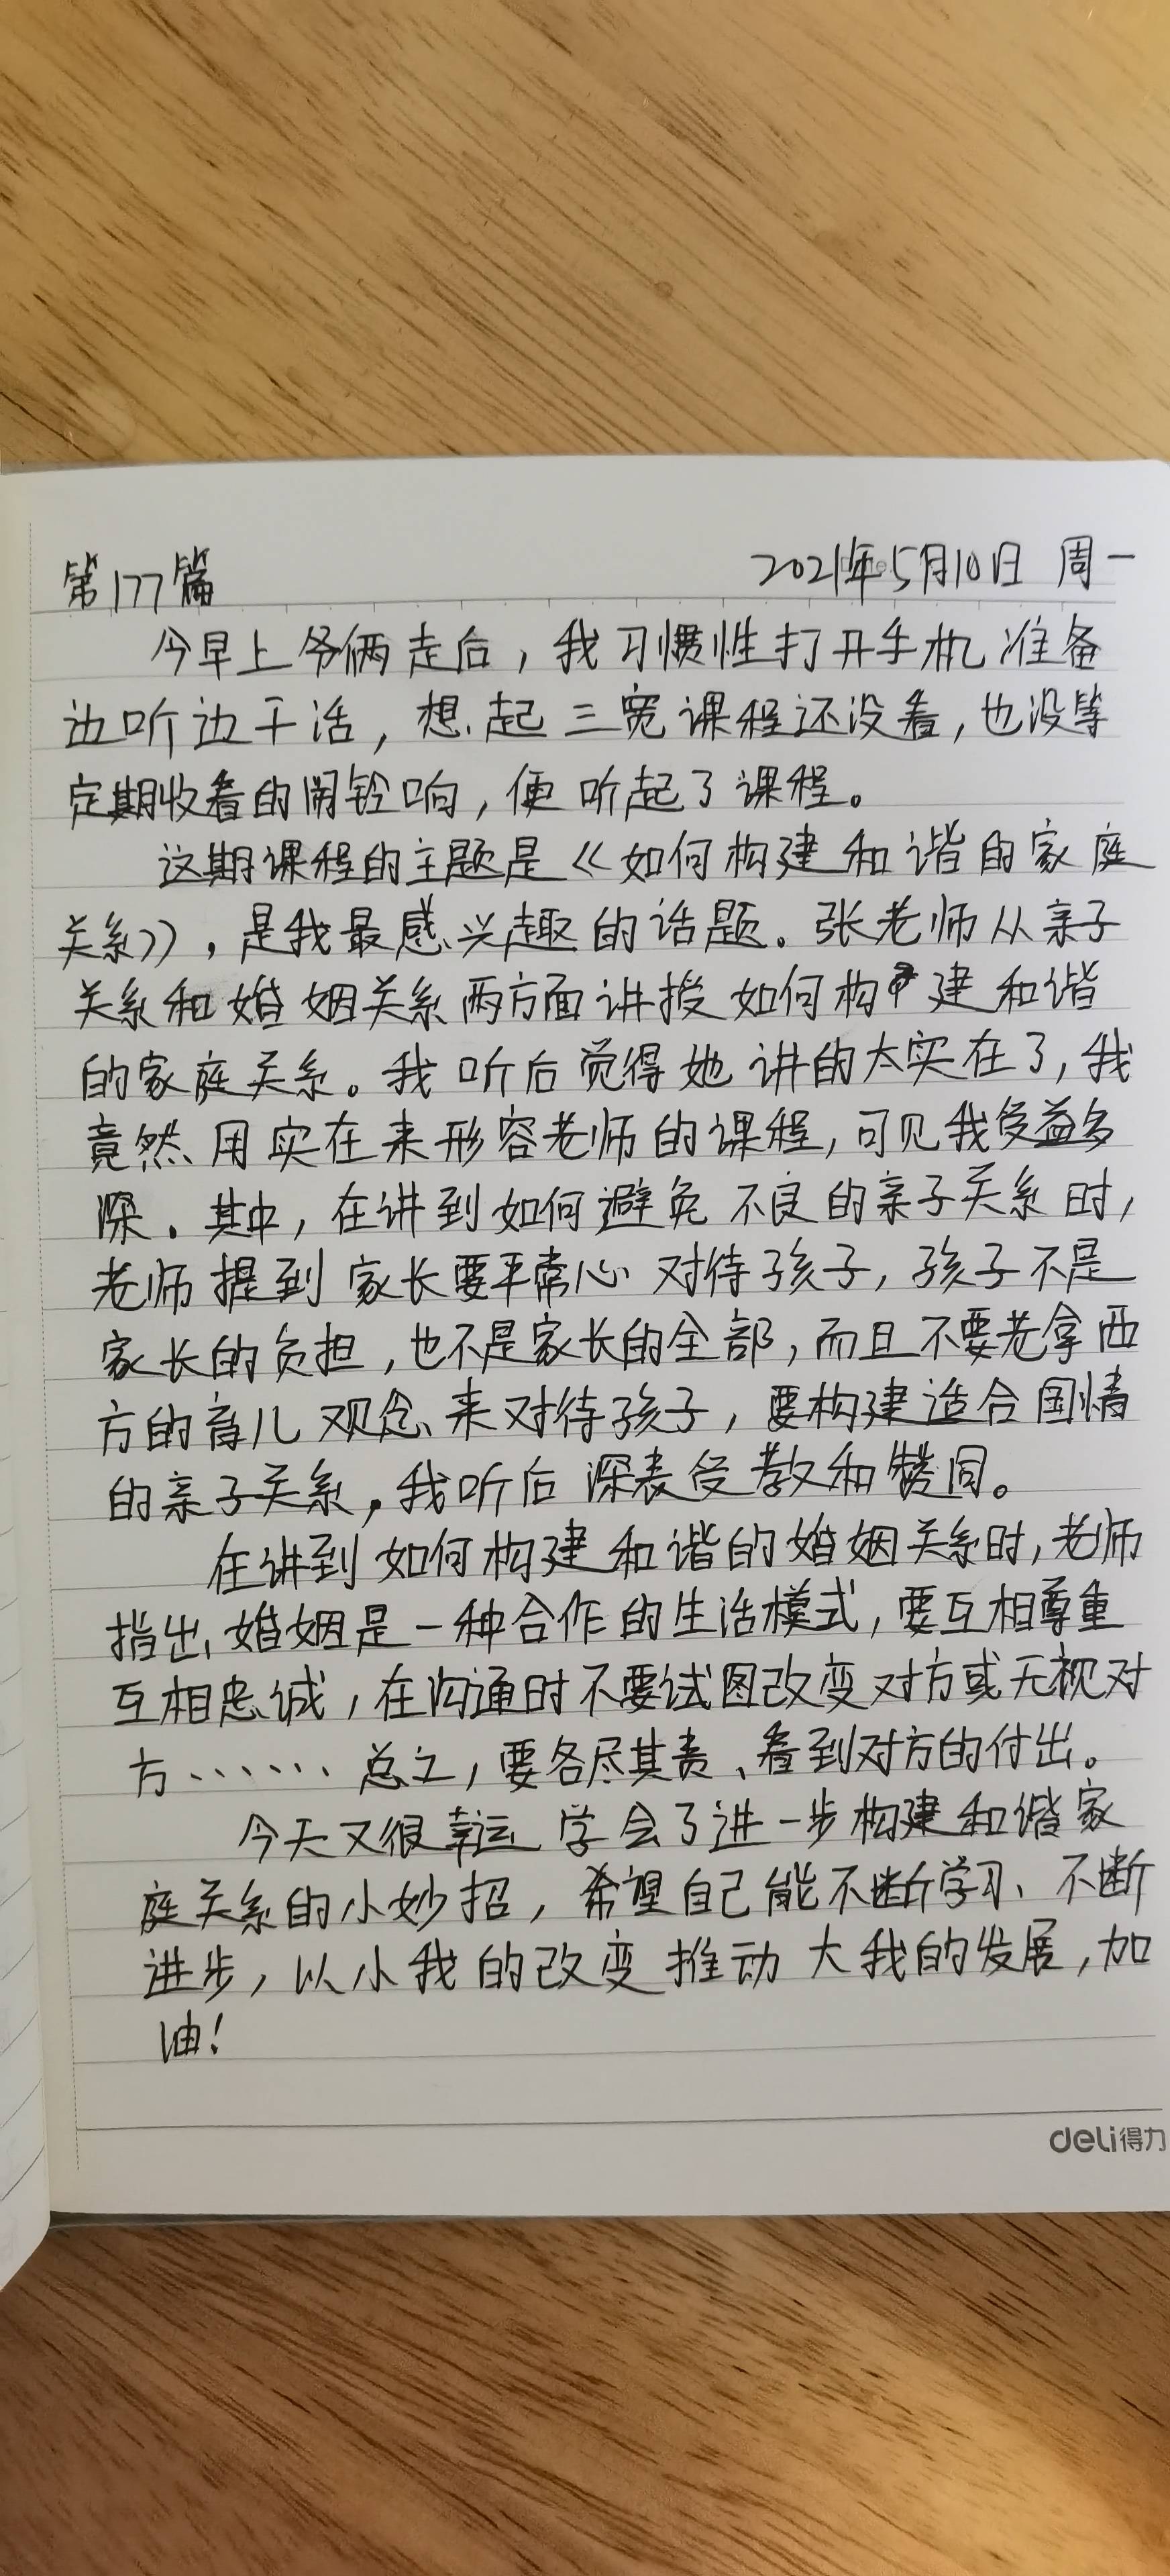 第177篇
2021年5月10日 周一
今早上爷俩走后，我习惯性打开手机准备
边听边干活，想起三宽课程还没看，也没等
定期收看的闹铃响，便听起了课程。
这期课程的主题是《如何构建和谐的家庭
关系》，是我最感兴趣的话题。张老师从亲子
关系和婚姻关系两方面讲授如何构建和谐
的家庭关系。我听后觉得她讲的太实在了，我
竟然用实在来形容老师的课程，可见我受益多
深。其中，在讲到如何避免不良的亲子关系时，
老师提到家长要平常心对待孩子，孩子不是
家长的负担，也不是家长的全部，而且不要老拿西
方的育儿观念来对待孩子，要构建适合国情
的亲子关系，我听后深表受教和赞同。
在讲到如何构建和谐的婚姻关系时，老师
指出，婚姻是一种合作的生活模式，要互相尊重
互相忠诚，在沟通时不要试图改变对方或无视对
方……总之，要各尽其责、看到对方的付出。
今天又很幸运学会了进一步构建和谐家
庭关系的小妙招，希望自己能不断学习、不断
进步，以小我的改变推动大我的发展，加
油！
deli得力